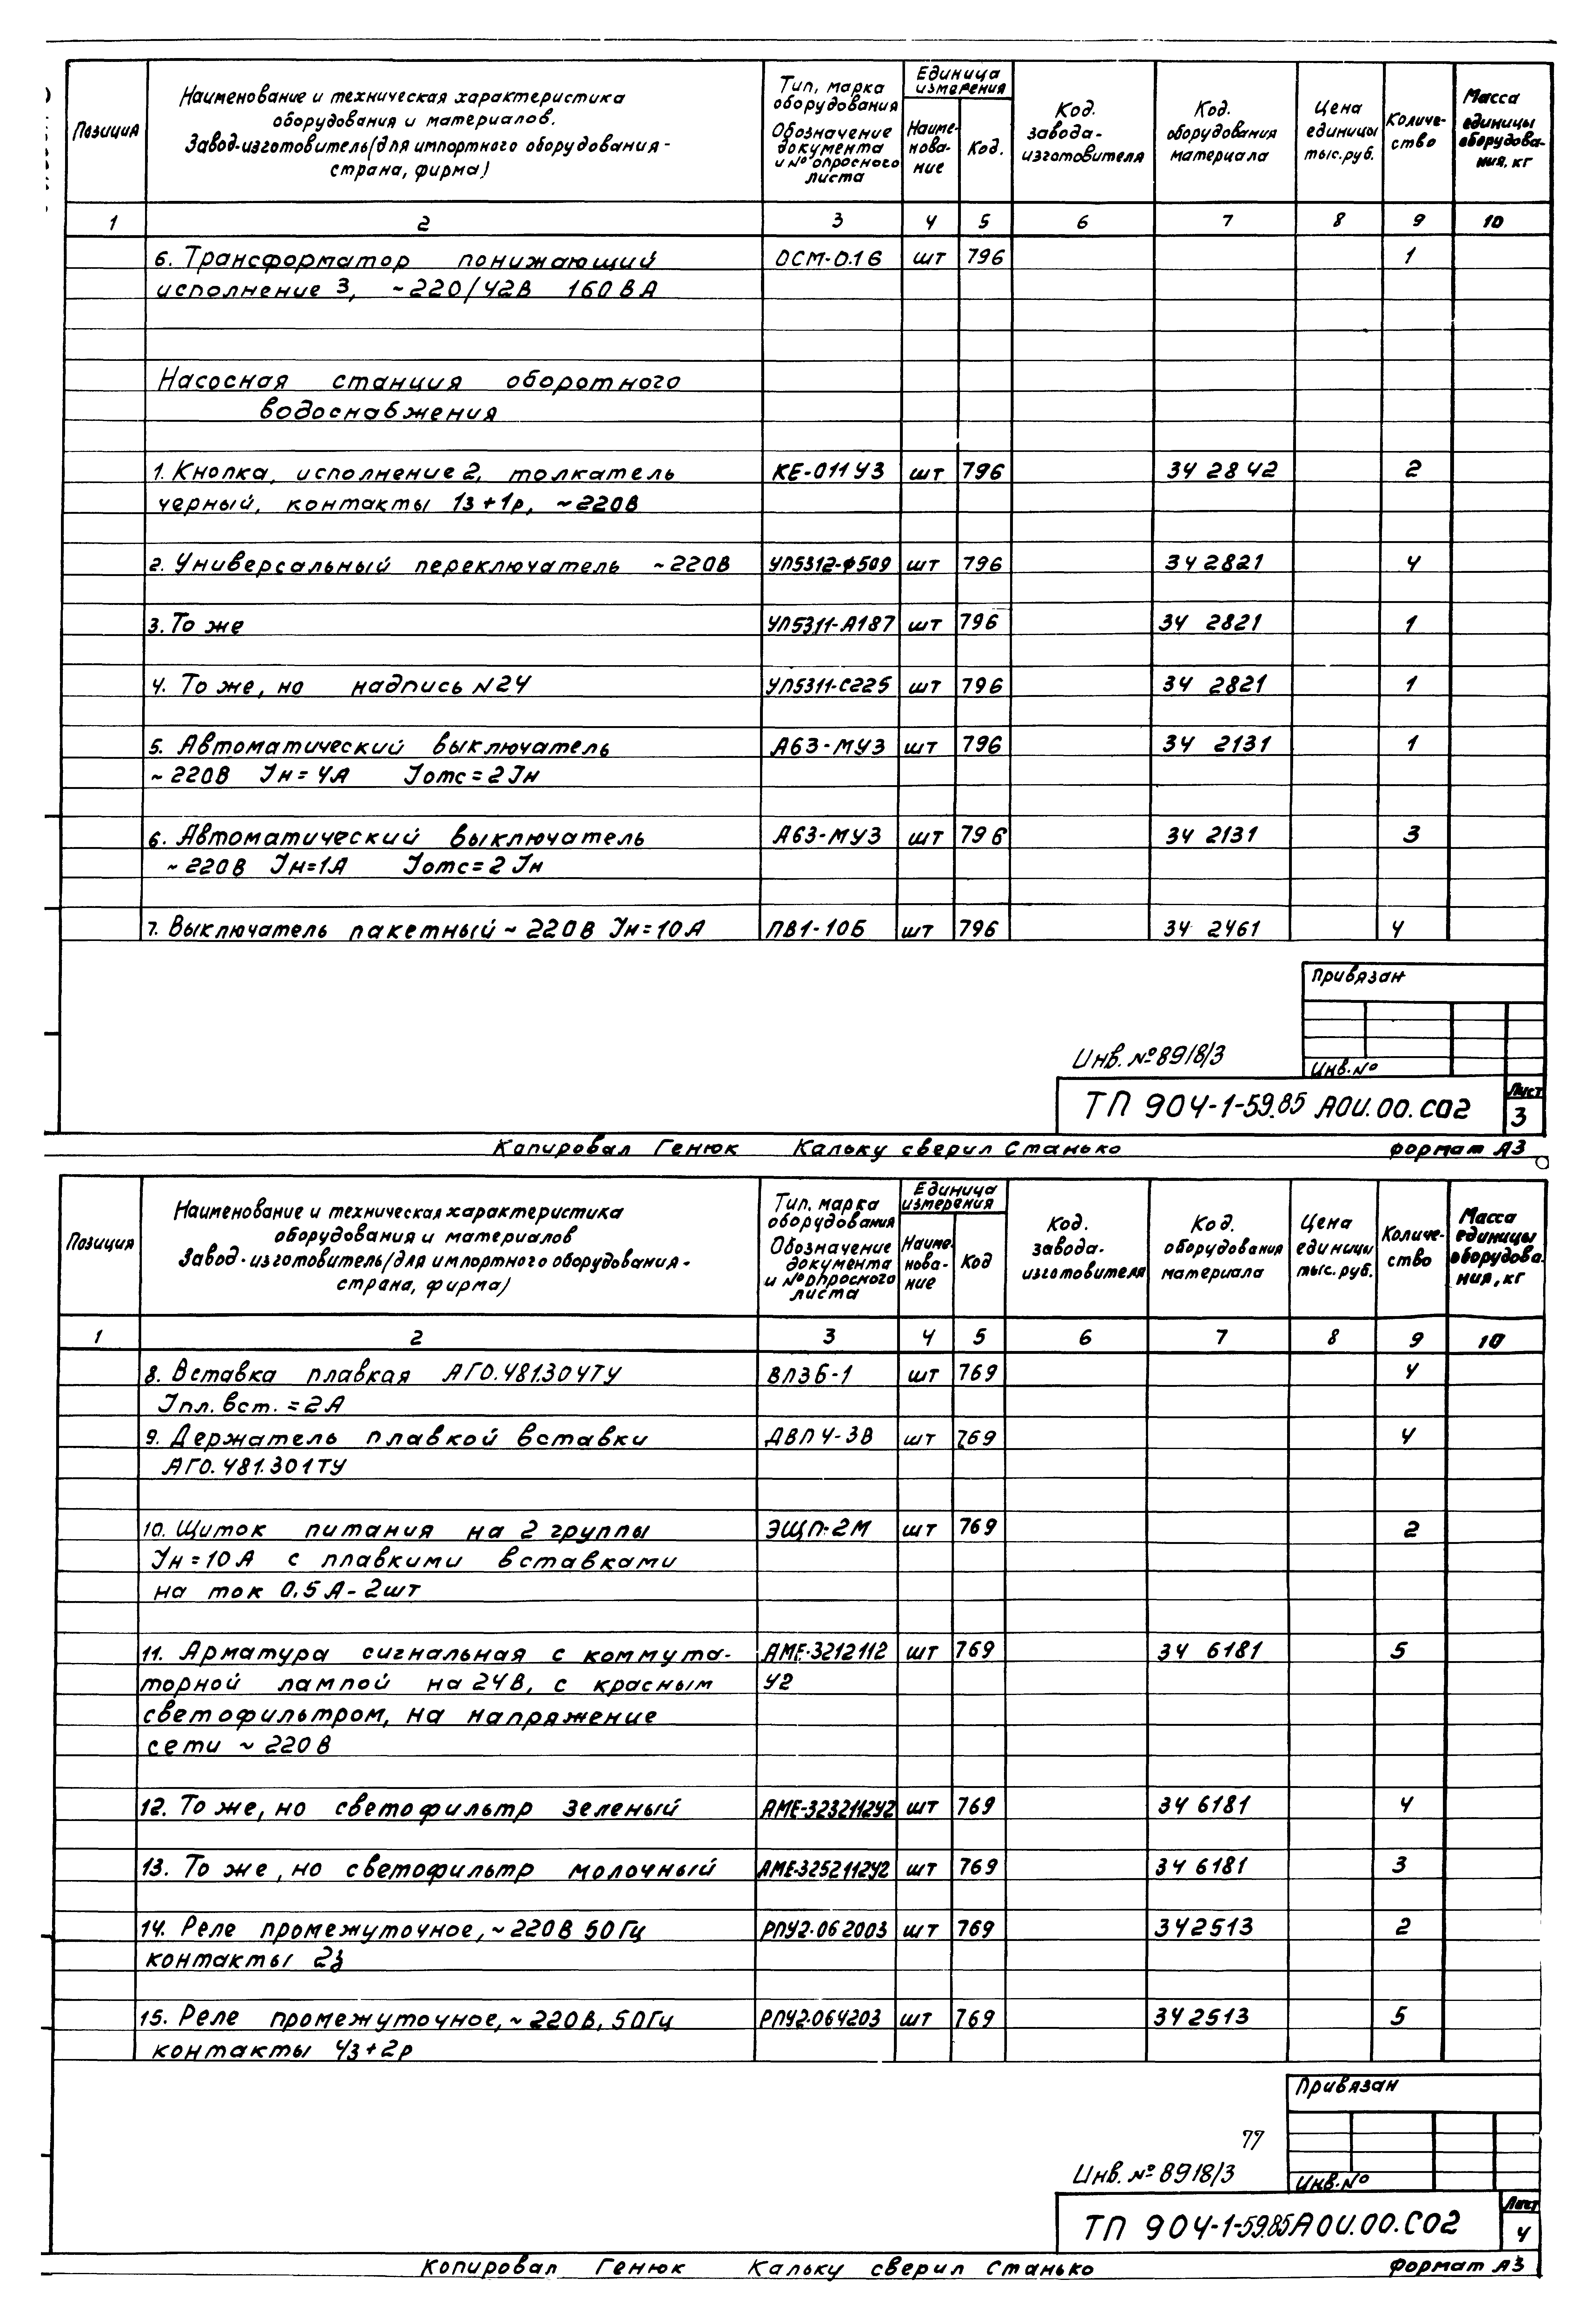 Позиция
Наименование и техническая характеристика
оборудования и материалов.
Завод-изготовитель (для импортного оборудования -
страна, фирма)
Тип, марка
оборудования
Обозначение
документа
и № опросного
листа
Единица
измерения
Наиме-
нова-
ние
Код.
Код.
завода-
изготовителя
Код.
оборудования
материала
Цена
единицы
тыс.руб.
Количе-
ство
Масса
единицы
оборудова-
ния, кг
1 2 3 4 5 6 7 8 9 10
6. Трансформатор понижающий ОСМ-0.16 шт 796 1
исполнение 3, ~220/42В 160ВА
Насосная станция оборотного
водоснабжения
1. Кнопка, исполнение 2, толкатель КЕ-011У3 шт 796 34 2842 2
черный, контакты 1з+1р, ~220В
2. Универсальный переключатель ~220В УП5312-Ф509 шт 796 34 2821 4
3. То же УП5311-А187 шт 796 34 2821 1
4. То же, но надпись N24 УП5311-С225 шт 796 34 2821 1
5. Автоматический выключатель А63-МУ3 шт 796 34 2131 1
~220В Iн=4А Iотс=2Iн
6. Автоматический выключатель А63-МУ3 шт 796 34 2131 3
~220В Iн=1А Iотс=2Iн
7. Выключатель пакетный ~220В Iн=10А ПВ1-10Б шт 796 34 2461 4
Привязан
Инв. № 8918/3
Инв.№
ТП 904-1-59.85 АОИ.00.СО2
Лист
3
Копировал Генюк Кальку сверил Станько формат А3
Позиция
Наименование и техническая характеристика
оборудования и материалов
Завод-изготовитель (для импортного оборудования -
страна, фирма)
Тип, марка
оборудования
Обозначение
документа
и № опросного
листа
Единица
измерения
Наиме-
нова-
ние
Код
Код.
завода-
изготовителя
Код.
оборудования
материала
Цена
единицы
тыс.руб.
Количе-
ство
Масса
единицы
оборудова-
ния, кг
1 2 3 4 5 6 7 8 9 10
8. Вставка плавкая АГО.481.304ТУ ВПЗБ-1 шт 769 4
Iпл.вст.=2А
9. Держатель плавкой вставки ДВП4-3В шт 769 4
АГО.481.301ТУ
10. Щиток питания на 2 группы ЭЩП-2М шт 769 2
Iн=10А с плавкими вставками
на ток 0.5А-2шт
11. Арматура сигнальная с коммута- АМЕ-3212112 шт 769 34 6181 5
торной лампой на 24В, с красным У2
светофильтром, на напряжение
сети ~220В
12. То же, но светофильтр зеленый АМЕ-3232112У2 шт 769 34 6181 4
13. То же, но светофильтр молочный АМЕ-3252112У2 шт 769 34 6181 3
14. Реле промежуточное, ~220В 50Гц РПУ2-062003 шт 769 342513 2
контакты 2з
15. Реле промежуточное, ~220В, 50Гц РПУ2-064203 шт 769 342513 5
контакты 4з+2р
Привязан
77
Инв. № 8918/3
Инв.№
ТП 904-1-59.85 АОИ.00.СО2
Лист
4
Копировал Генюк Кальку сверил Станько формат А3